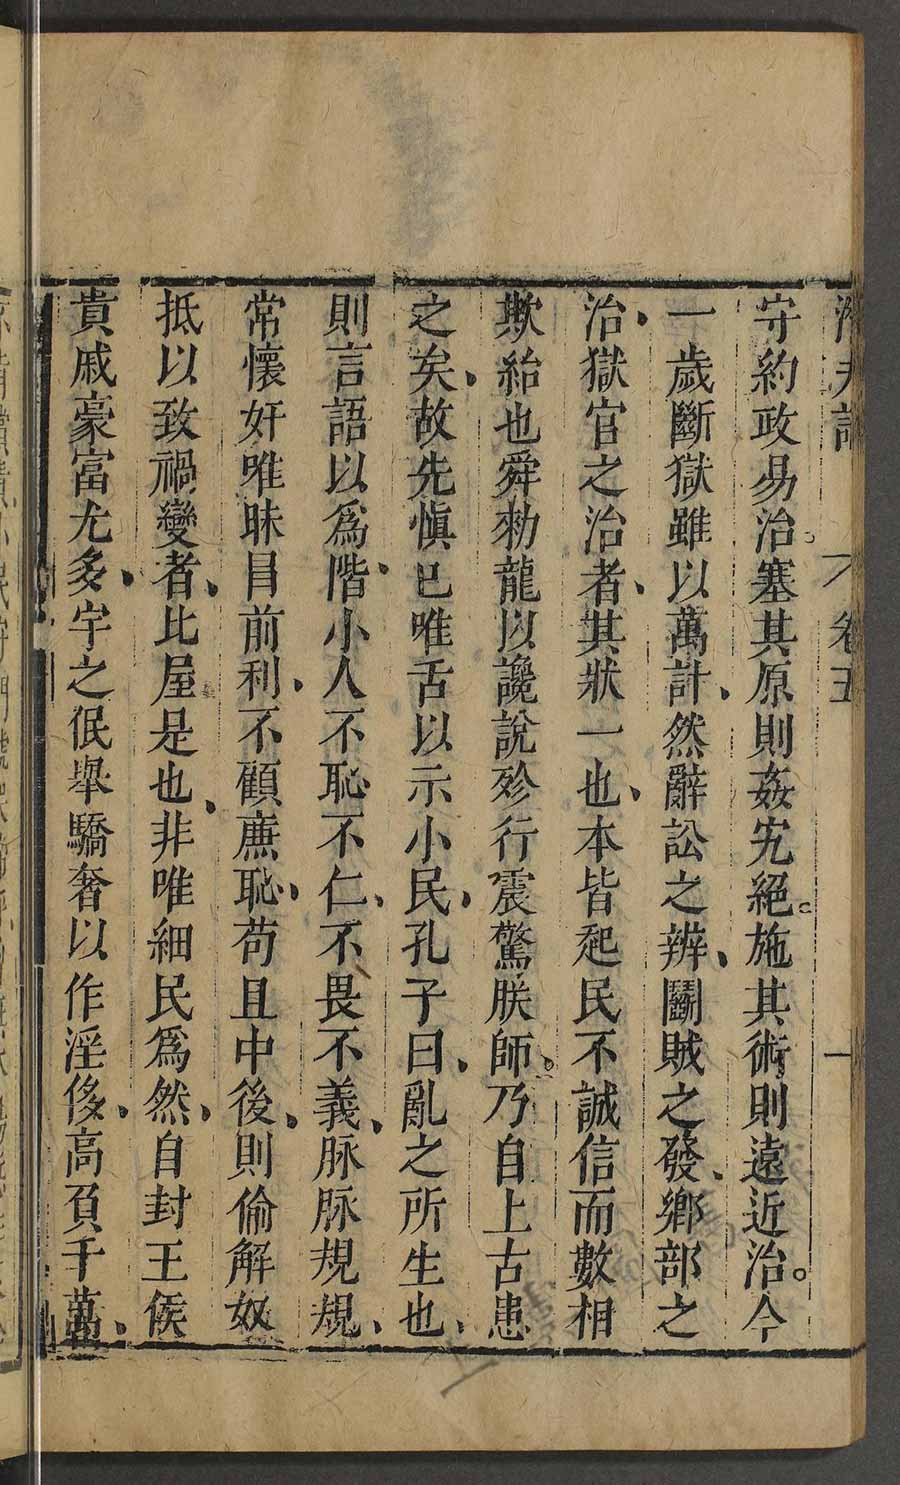 潛夫論 卷五 一
守約政易治塞其原則姦宄絕施其術則遠近治。今
一歲斷獄雖以萬計、然辭訟之辨、鬭賊之發、鄉部之
治、獄官之治者、其狀一也、本皆起民不誠信而數相
欺紿也舜勑龍以讒說殄行震驚朕師。乃自上古患
之矣、故先慎己唯舌以示小民、孔子曰、亂之所生也、
則言語以爲階、小人不恥不仁、不畏不義、脉脉規規、
常懷奸唯昧目前利、不顧廉恥、苟且中後、則偷解奴
抵以致禍變者、比屋是也、非唯細民爲然、自封王侯
貴戚豪富尤多、字之佷舉驕奢以作淫侈、高負千萬、